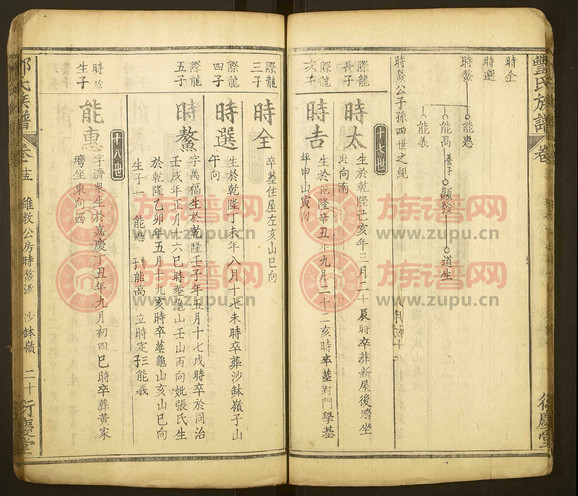 酆氏族譜 卷
行慶堂
時全
時選
時鰲 能惠
能高 養子 道生
能義
時鰲公子孫四世之紀
十七世
際龍長子
時太 生於乾隆己亥年三月二十辰時卒葬新屋後灣坐
北向南
際龍次子
時吉 生於乾隆辛丑年九月二十二亥時卒墓對門學基
坪申山寅向
際龍三子
時全 卒墓住屋左亥山巳向
際龍四子
時選 生於乾隆丁未年八月十七未時卒葬沙鉢嶺子山
午向
際龍五子
時鰲 字萬福生於乾隆壬子年五月十七戌時卒於同治
壬戌年正月十六巳時墓龜山壬山丙向姚張氏生
於乾隆乙卯年五月十九亥時卒墓龜山亥山巳向
生子一 能惠 能高 立時定子能義
十八世
時鰲
能惠 字濟眾生於嘉慶丁丑年九月初四巳時卒葬黃家
灣坐東向西
氏族譜 卷 維敘公房時鰲派 沙鉢嶺 二十 行慶堂
族谱网
www.zupu.cn
族谱网
www.zupu.cn
族谱网
www.zupu.cn
族谱网
www.zupu.cn